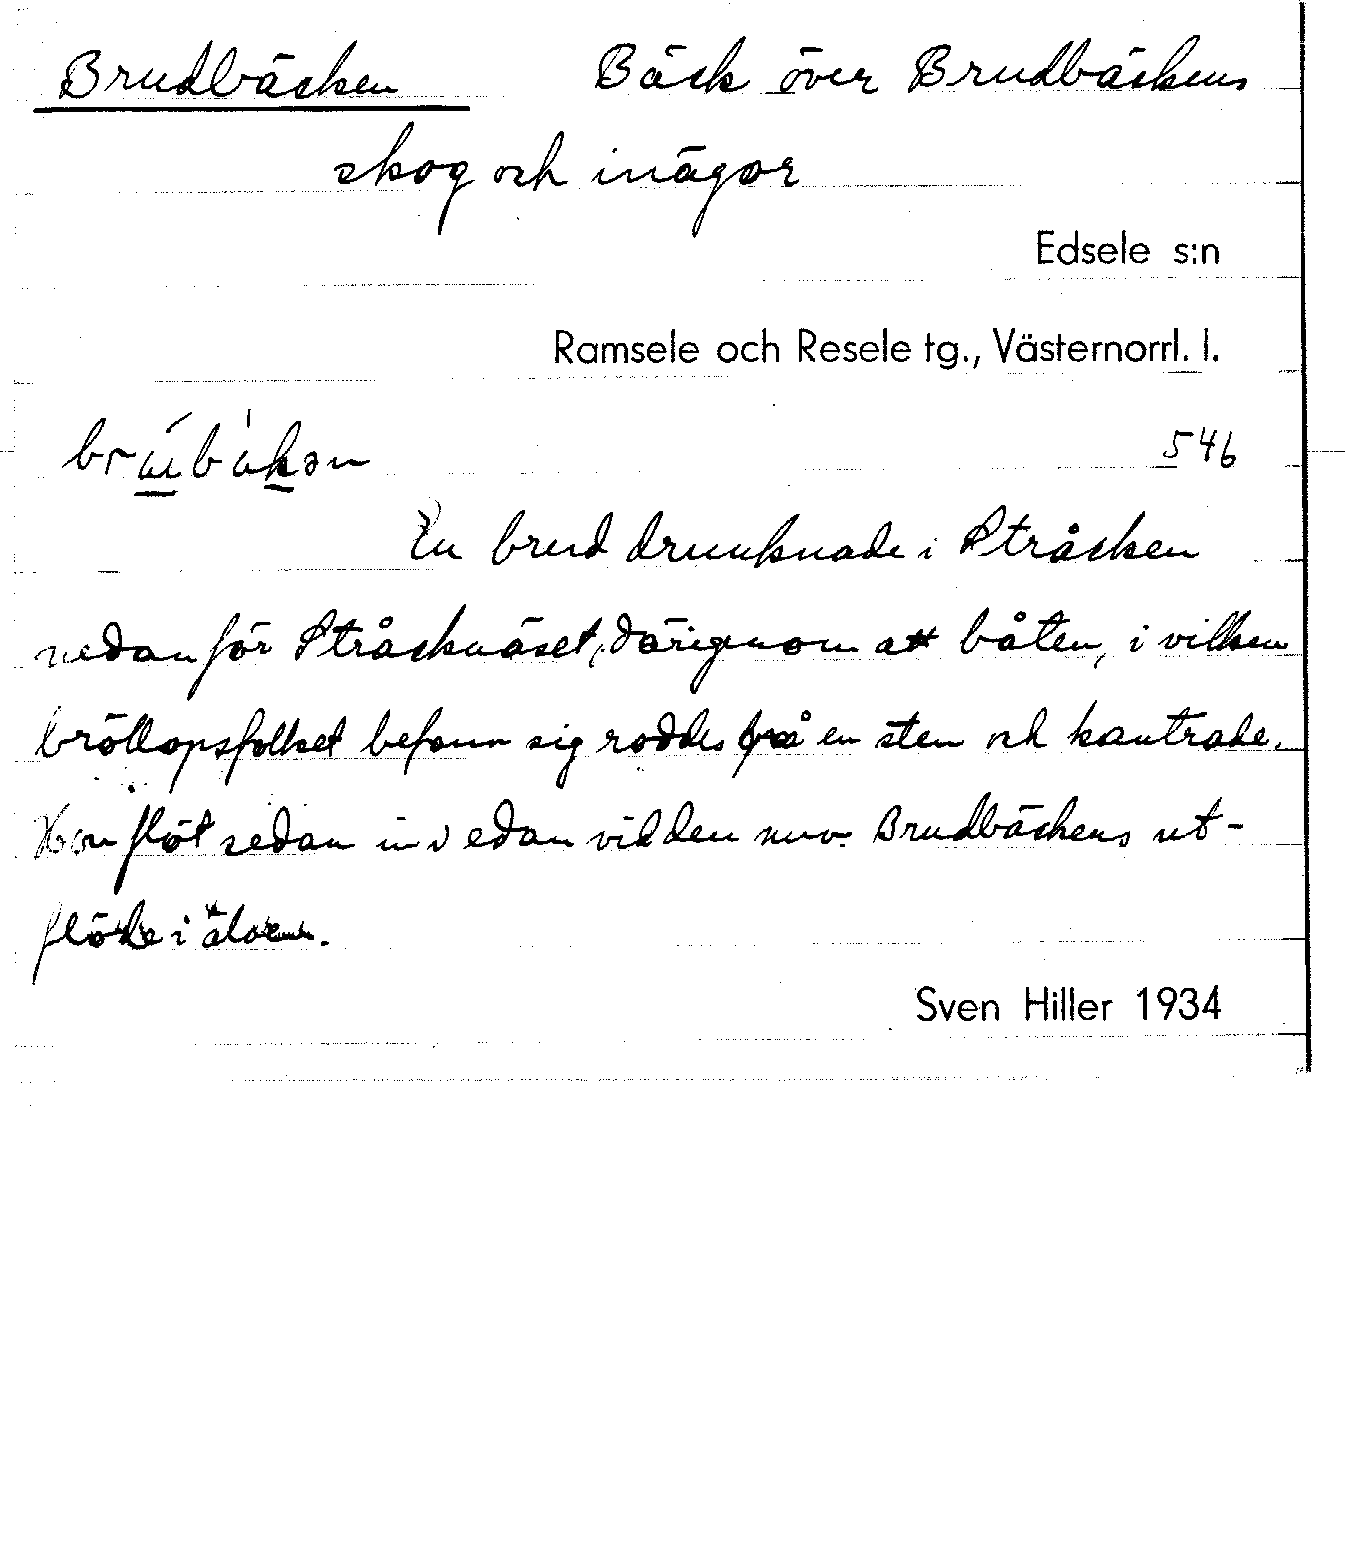 Brudbäcken Bäck över Brudbäckens
skog och inägor
Edsele s:n
Ramsele och Resele tg., Västernorrl. l.
546
En brud drunknade i Stråcken
nedanför Stråcknäset, därigenom att båten, i vilken
bröllopsfolket befann sig roddes på en sten och kantrade.
Hon flöt sedan in nedan vid den nuv. Brudbäckens ut-
flöde i älven.
Sven Hiller 1934